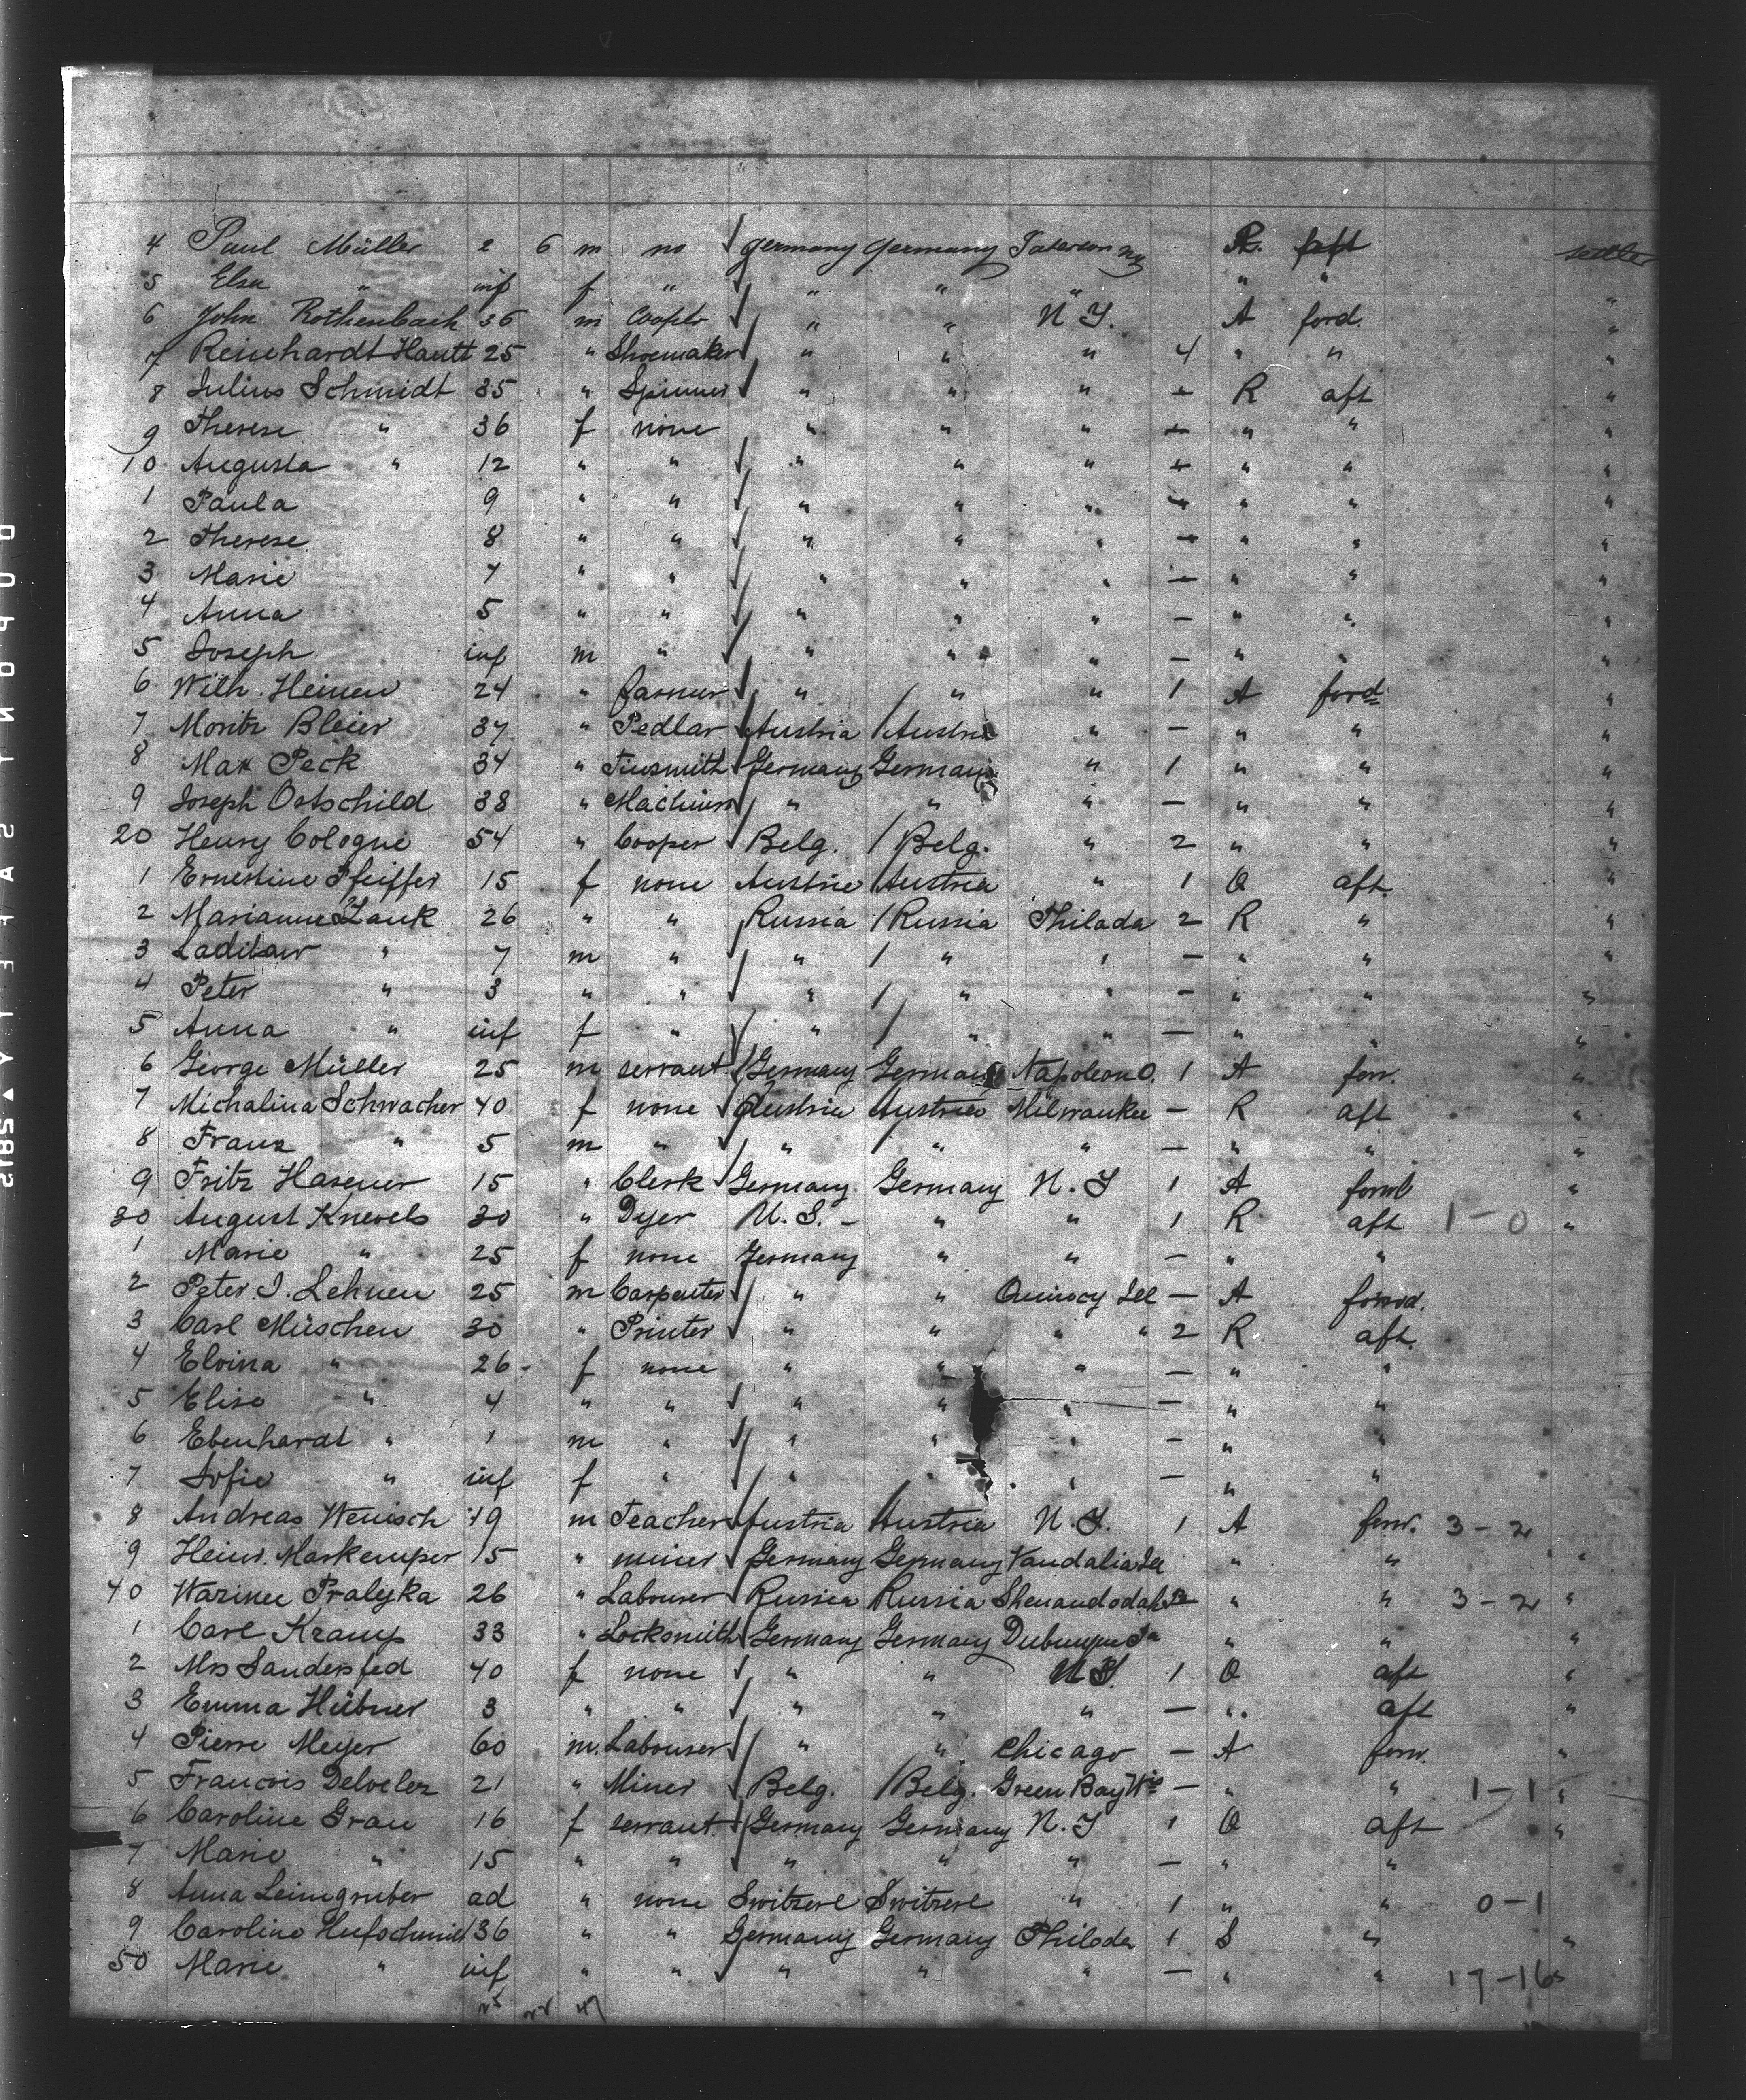 4 Paul Müller 2 6 m no germany germany Paterson NY R. aft settler
5 Elsa " inf f " " " " " "
6 John Rothenbach 36 m Cooper " " N Y. A ford. "
7 Reinhardt Hautt 25 " Shoemaker " " " 4 " " "
8 Julius Schmidt 35 " Spinner " " " - R aft "
9 Therese " 36 f none " " " - " " "
10 Augusta " 12 " " " " " - " " "
1 Paula 9 " " " " " - " " "
2 Therese 8 " " " " " - " " "
3 Marie 7 " " " " " - " " "
4 Anna 5 " " " " " - " " "
5 Joseph inf m " " " " - " " "
6 Wilh. Heinen 24 " farmer " " " 1 A ford "
7 Moritz Bleier 37 " Pedlar Austria Austria " - " " "
8 Max Peck 34 " Tinsmith Germany Germany " 1 " " "
9 Joseph Ootschild 38 " " " " - " " "
20 Henry Cologne 54 " Cooper Belg. Belg. " 2 " " "
1 Ernestine Pfeiffer 15 f none Austria Austria " 1 O aft "
2 Marianne Zauk 26 " " Russia Russia Philada 2 R " "
3 Ladislaw " 7 m " " " " - " " "
4 Peter " 3 " " " " " - " " "
5 Anna " inf f " " " " - " " "
6 George Müller 25 m servant Germany Germany Napoleon O. 1 A forw. "
7 Michalina Schwacher 40 f none Austria Austria Milwaukee - R aft "
8 Franz " 5 m " " " " - " " "
9 Fritz Hasener 15 " Clerk Germany Germany N. Y 1 A "
30 August Knevels 30 " Dyer U. S. - " " 1 R aft 1-0 "
1 Marie " 25 f none Germany " " - " "
2 Peter J. Lehnen 25 m Carpenter " " Quincy Ill - A
3 Carl Müschen 30 " Printer " " " " 2 R aft.
4 Elvina " 26 - f none " " " - " "
5 Elise " 4 " " " " " - " "
6 Ebenhardt " 1 m " " " " - " "
7 Sofie " inf f " " " " - " "
8 Andreas Wenisch 19 m Teacher Austria Austria N. Y. 1 A forw. 3-2
9 Heinr. Markemper 15 " miner Germany Germany Vandalia Ill " " "
40 Pralyka 26 " Labourer Russia Russia Shenandodah Pa " " 3-2 "
1 Carl Kramp 33 " Locksmith Germany Germany Dubuque Ia " " "
2 Mrs Sandersfed 40 f none " " N Y. 1 O aft "
3 Emma Hübner 3 " " " " " - " aft "
4 Pierre Meyer 60 m. Labourer " " Chicago - A forw. "
5 Francois Delveler 21 " Miner Belg. Belg. Green Bay Wis - " " 1-1 "
6 Caroline Grau 16 f servant Germany Germany N. Y 1 O aft "
7 Marie " 15 " " " " " - " "
8 Anna Leimgruber ad " none Switzerl Switzerl " 1 " " 0-1
9 Caroline 36 " " Germany Germany Philada 1 S " "
50 Marie " inf " " " " " - " " 17-16